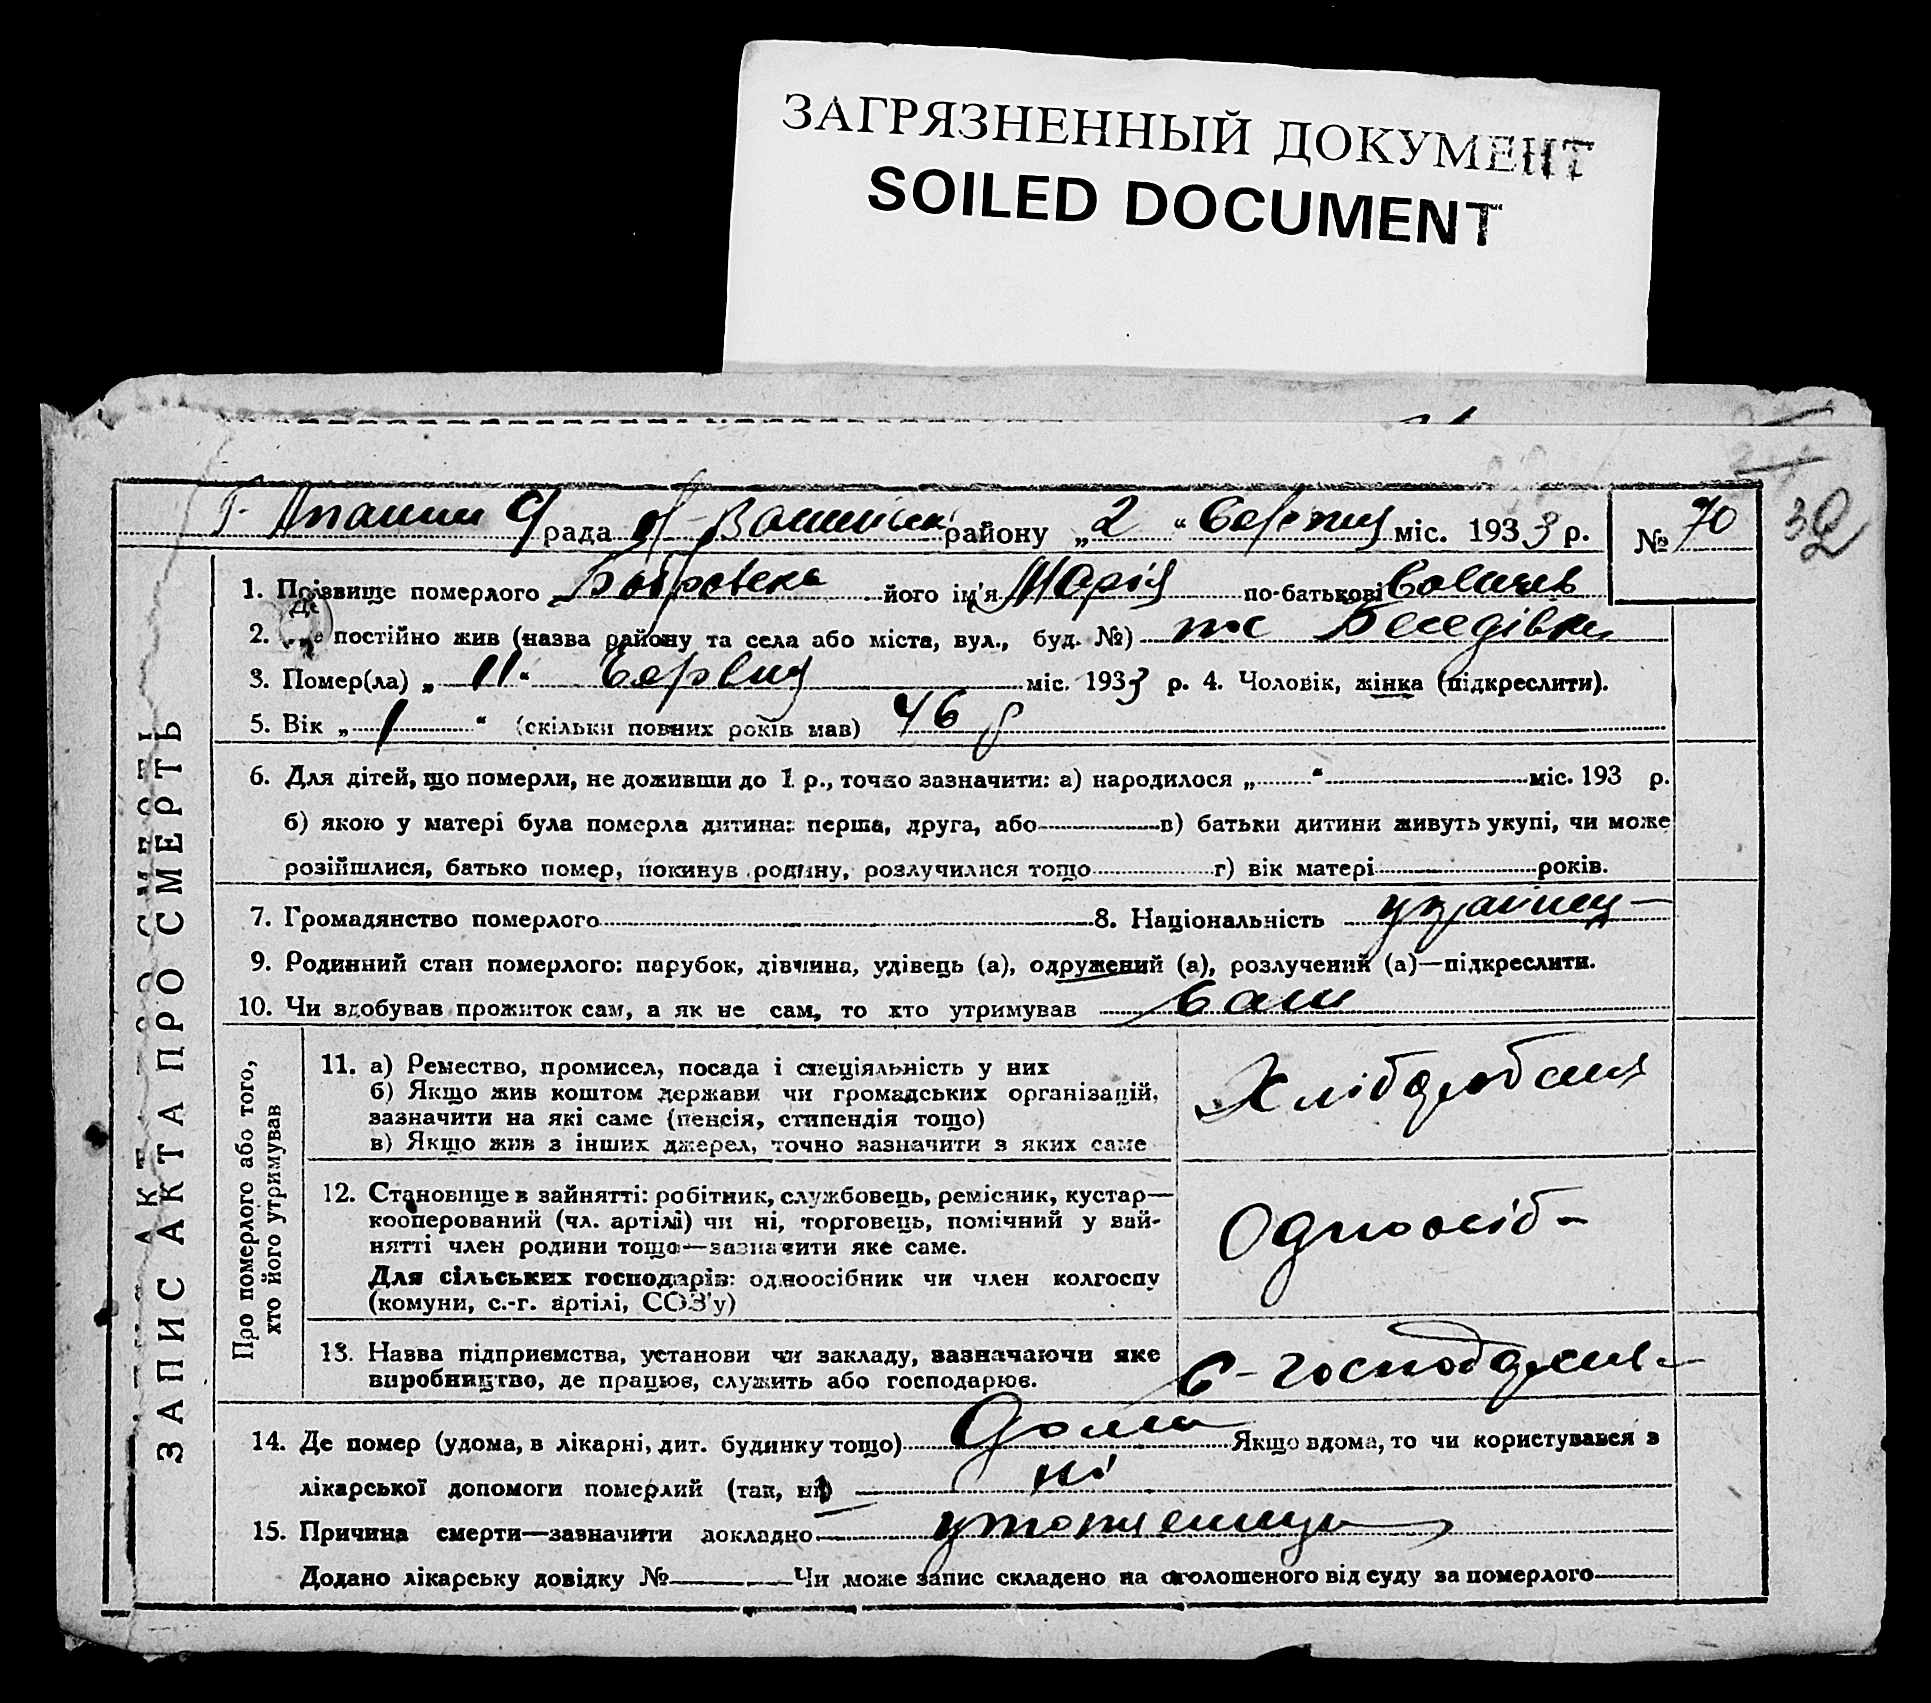 ЗАГРЯЗНЕННЫЙ ДОКУМЕНТ
SOILED DOCUMENT
рада району „ 2 “ міс. 1933 р. № 70
32
ЗАПИС АКТА ПРО СМЕРТЬ
1. Прізвище померлого його ім'я Марія по-батькові
2. Де постійно жив (назва району та села або міста, вул., буд. №) Беседівка
3. Помер(ла) „ 11 “ міс. 1933 р. 4. Чоловік, жінка (підкреслити).
5. Вік „ “ (скільки повних років мав) 46 р
6. Для дітей, що померли, не доживши до 1 р., точно зазначити: а) народилося „ “ міс. 193 р.
б) якою у матері була померла дитина: перша, друга, або в) батьки дитини живуть укупі, чи може
розійшлися, батько помер, покинув родину, розлучилися тощо г) вік матері років.
7. Громадянство померлого 8. Національність українец
9. Родинний стан померлого: парубок, дівчина, удівець (а), одружений (а), розлучений (а)—підкреслити.
10. Чи здобував прожиток сам, а як не сам, то хто утримував сам
Про померлого або того,
хто його утримував
11. а) Ремество, промисел, посада і спеціяльність у них
б) Якщо жив коштом держави чи громадських організацій,
зазначити на які саме (пенсія, стипендія тощо)
в) Якщо жив з інших джерел, точно зазначити з яких саме
12. Становище в зайнятті: робітник, службовець, ремісник, кустар—
кооперований (чл. артілі) чи ні, торговець, помічний у зай-
нятті член родини тощо—зазначити яке саме.
Для сільських господарів: одноосібник чи член колгоспу
(комуни, с.-г. артілі, СОЗ'у)
Одноосіб-
13. Назва підприємства, установи чи закладу, зазначаючи яке
виробництво, де працює, служить або господарює.
14. Де помер (удома, в лікарні, дит. будинку тощо) дома Якщо вдома, то чи користувався з
лікарської допомоги померлий (так, ні) ні
15. Причина смерти—зазначити докладно
Додано лікарську довідку № Чи може запис складено на оголошеного від суду за померлого